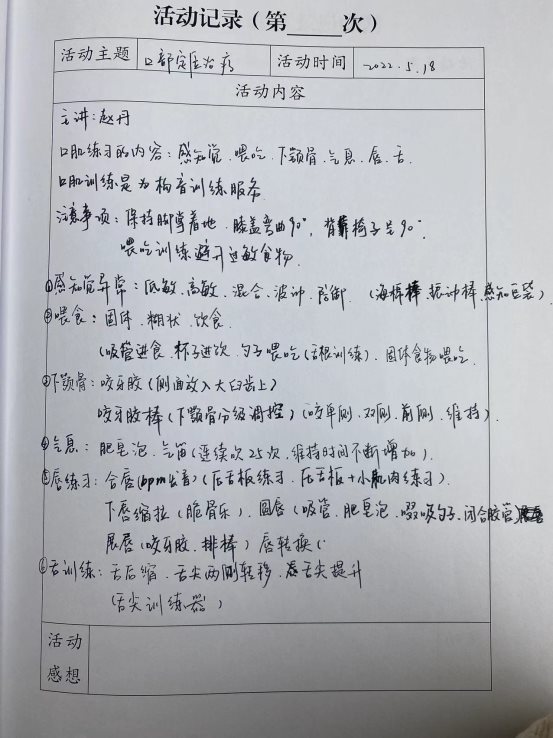 活动记录（第____次）
活动主题 口部定位治疗 活动时间 2022.5.18
活动内容
主讲：赵丹
口腔练习的内容：感知觉、喂吃、下颚骨、气息、唇、舌.
口腔训练是为构音训练服务
注意事项：保持脚掌着地，膝盖弯曲90°，背靠椅子呈90°
喂吃训练避开过敏食物.
①感知觉异常：低敏、高敏、混合、波动、防御.（海棉棒、振动棒、感知豆袋）
②喂食：固体、糊状、饮食.
（吸管进食、杯子进饮、勺子喂吃（舌根训练）、固体食物喂吃.
③下颚骨：咬牙胶（侧面放入大臼齿上）
咬牙胶棒（下颚骨分级调控）（咬单侧、双侧、前侧、维持）.
④气息：肥皂泡、气笛（连续吹25次、维持时间不断增加）.
⑤唇练习：合唇（bpm出音）（压舌板练习、压舌板+小肌肉练习）.
下唇缩拉（脆骨乐）、圆唇（吸管、肥皂泡、啜吸勺子、闭合胶管）
展唇（咬牙胶、排棒）唇转换（
⑥舌训练：舌后缩、舌尖两侧转移、舌尖提升
（舌尖训练器）
活动
感想